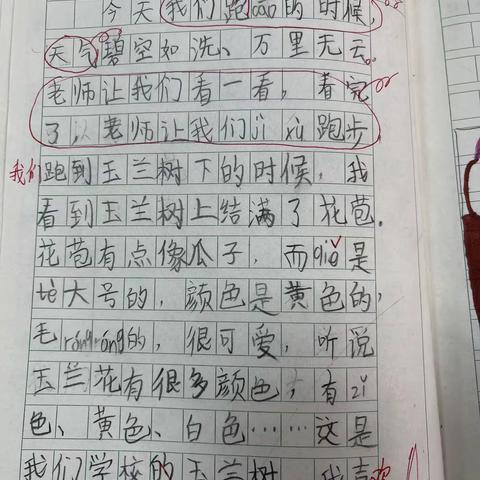 今天我们跑的时候,
天气碧空如洗、万里无云。
老师让我们看一看,看完
了,老师让我们jì xù跑步
我们跑到玉兰树下的时候,我
看到玉兰树上结满了花苞.
花苞有点像瓜子,而qiě是
tè大号的,颜色是黄色的,
毛róng róng的,很可爱,听说
玉兰花有很多颜色,有zǐ
色、黄色、白色……这是
我们学校的玉兰树,我喜